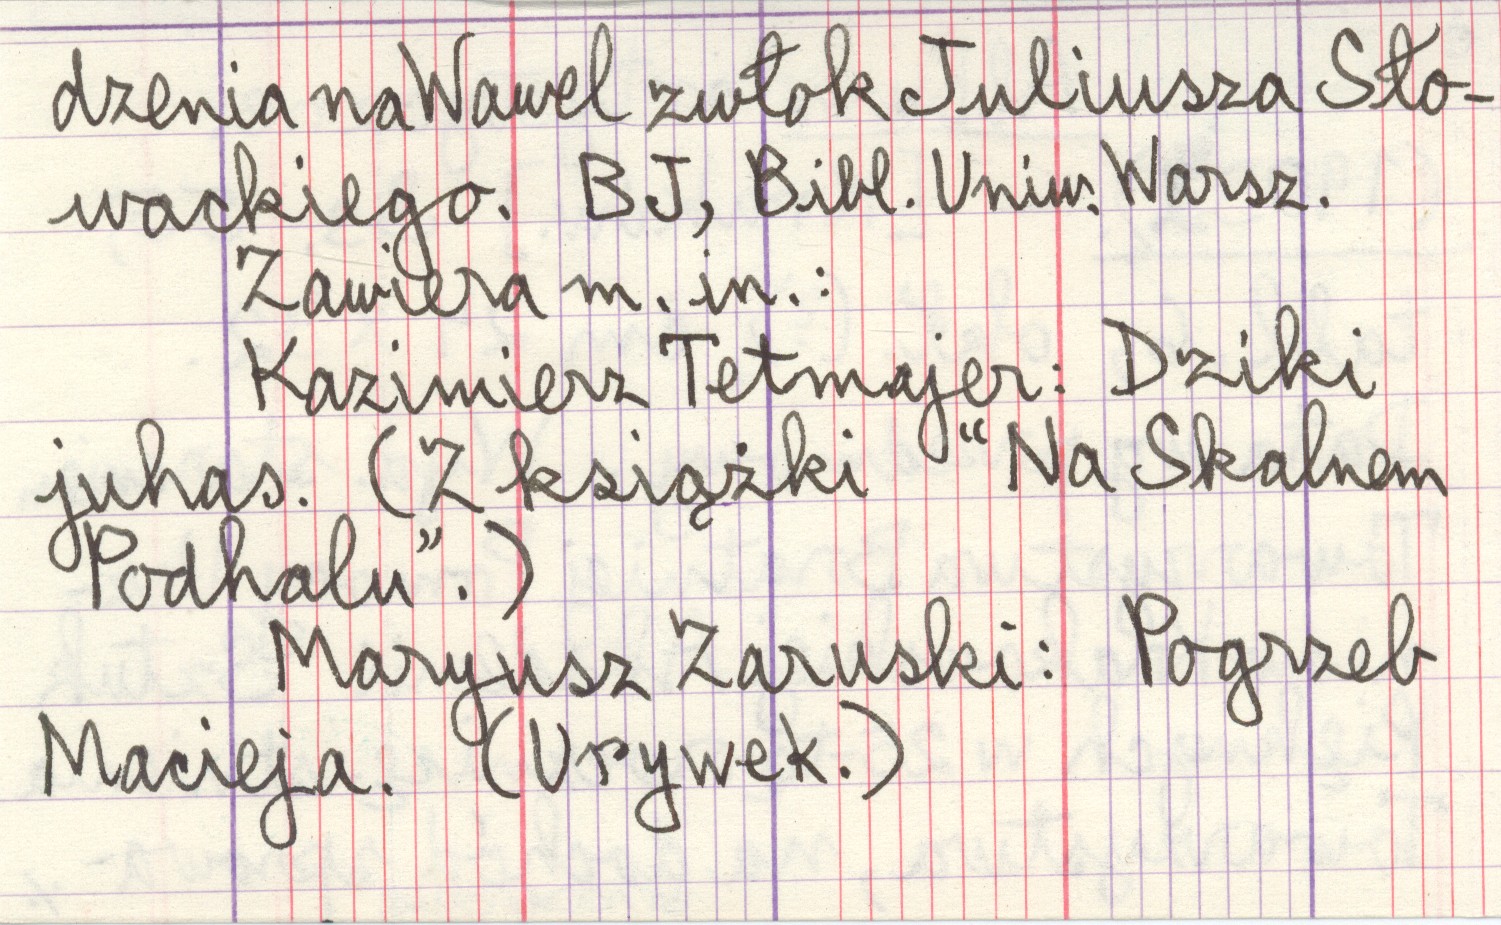 dzenia na Wawel zwłok Juliusza Sło-
wackiego. BJ, Bibl. Uniw. Warsz.
Zawiera m. in.:
Kazimierz Tetmajer: Dziki
juhas. (Z książki “Na Skalnem
Podhalu”.)
Maryusz Zaruski: Pogrzeb
Macieja. (Urywek.)